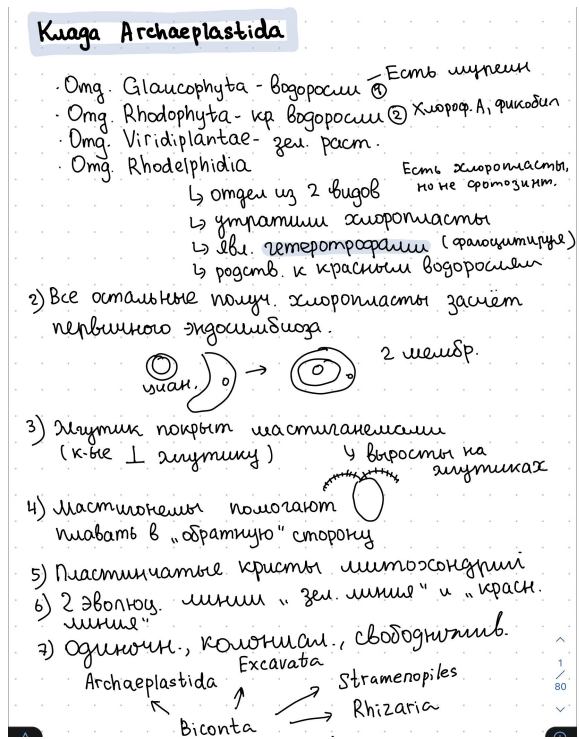 Клада Archaeplastida
· Отд. Glaucophyta - водоросли ① - Есть муреин
· Отд. Rhodophyta - кр водоросли ② Хлороф. А, фикобил
· Отд. Viridiplantae - зел. раст.
· Отд. Rhodelphidia
Есть хлоропласты,
но не фотозинт.
↳ отдел из 2 видов
↳ утратили хлоропласты
↳ явл. гетеротрофами (фагоцитируя)
↳ родств. к красным водорослям
2) Все остальные получ. хлоропласты засчёт
первичного эндосимбиоза.
циан. →
2 мембр.
3) Жгутик покрыт мастиганемами
(к-ые ⊥ жгутику)
↳ выросты на
жгутиках
4) Мастигонемы помогают
плавать в „обратную" сторону
5) Пластинчатые кристы митохондрий
6) 2 эволюц. линии „зел. линия" и „красн.
линия"
7) Одиночн., колониал., свободножив.
Excavata
Archaeplastida
Stramenopiles
Rhizaria
Biconta
1
/
80